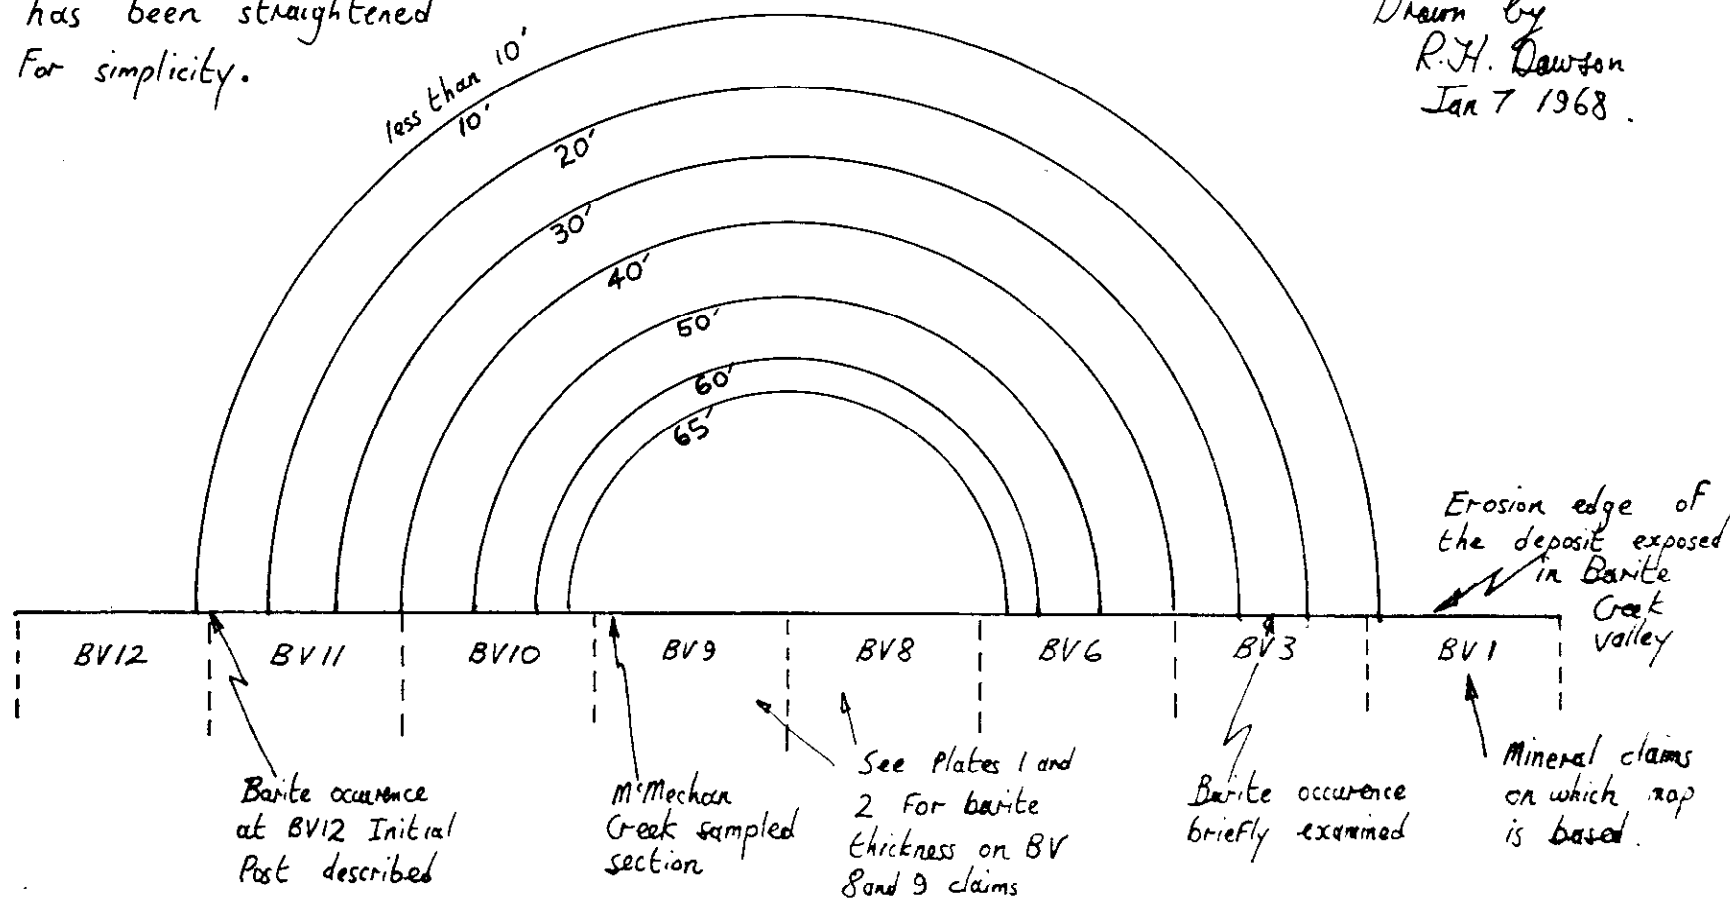 has been straightened
For simplicity.
Drawn by
R.H. Dawson
Jan 7 1968.
less than 10'
10'
20'
30'
40'
50'
60'
65'
Erosion edge of
the deposit exposed
in Barite
Creek
valley
BV12
BV11
BV10
BV9
BV8
BV6
BV3
BV1
Barite occurence
at BV12 Initial
Post described
McMechan
Creek sampled
section
See Plates 1 and
2 For barite
thickness on BV
8 and 9 claims
Barite occurence
briefly examined
Mineral claims
on which map
is based.